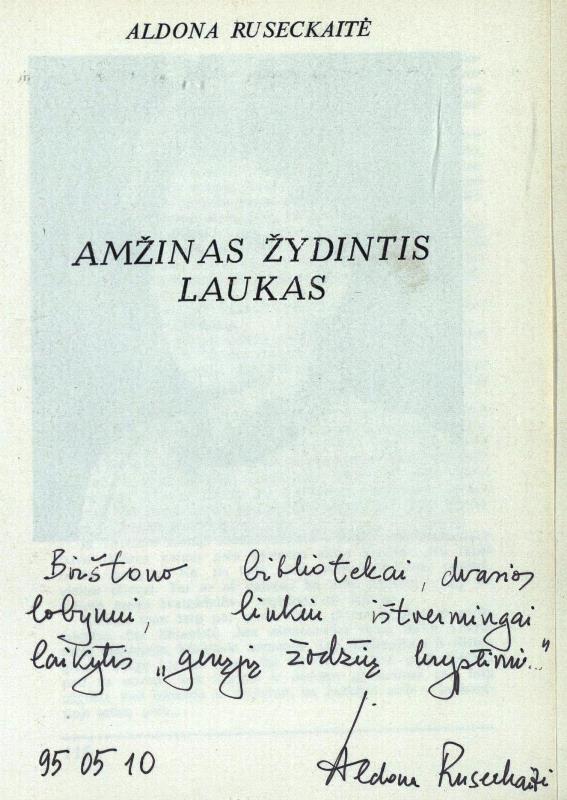 ALDONA RUSECKAITĖ
AMŽINAS ŽYDINTIS
LAUKAS
Birštono bibliotekai, dvasios
lobynui, linkiu ištvermingai
laikytis „gerųjų žodžių kryptimi..."
95 05 10
Aldona Ruseckaitė